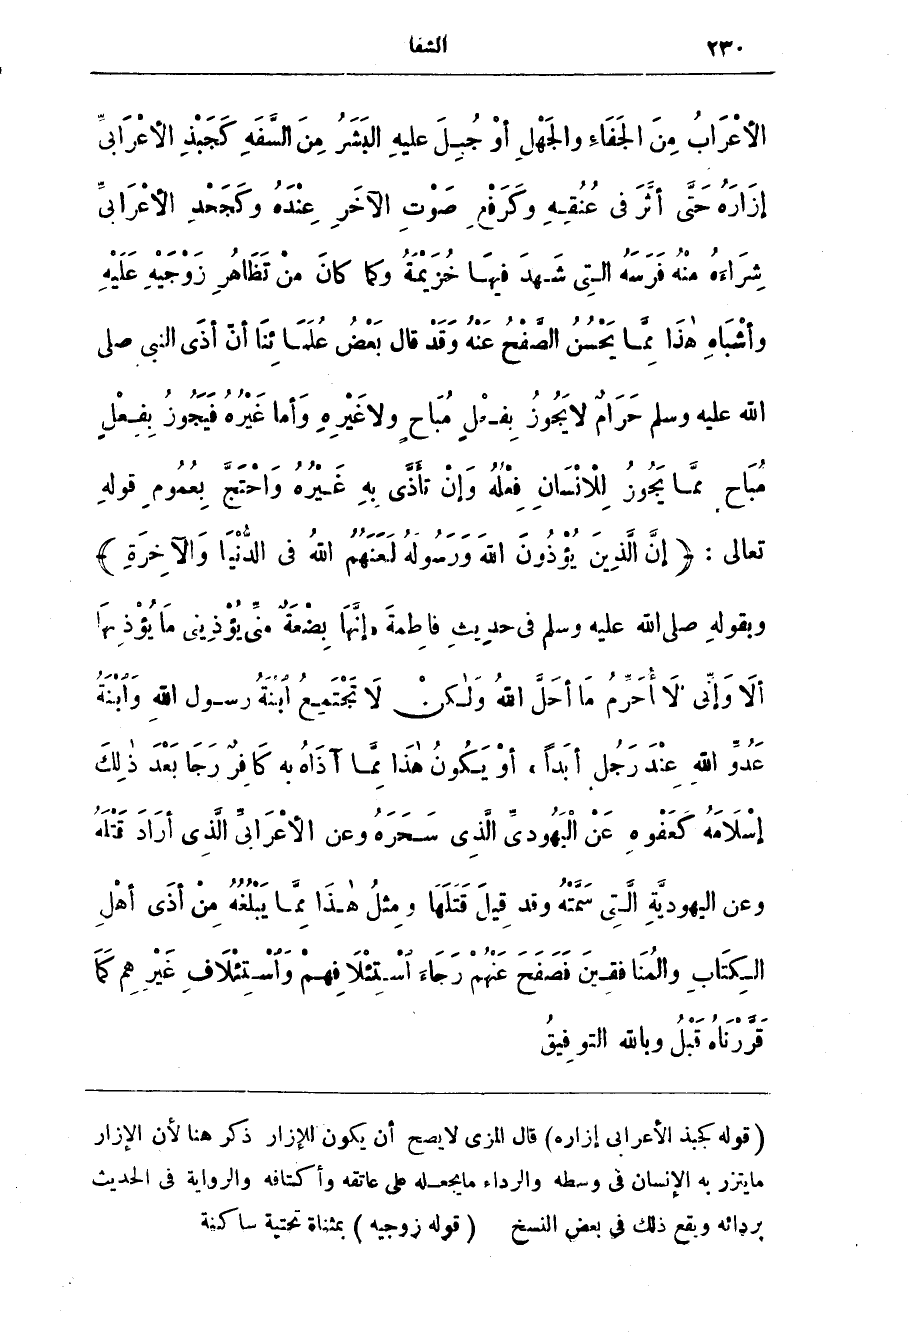 ٢٣٠ الشفا
الأعْرَابُ مِنَ الجَفَاءِ والجَهْلِ أوْ جُبِلَ عليهِ البَشَرُ مِنَ السَّفَهِ كَجَبْذِ الأعْرَابىِّ
إزَارَهُ حَتَّى أثَّرَ فى عُنُقِهِ وكَرَفْعِ صَوْتِ الآخَرِ عِنْدَهُ وكَجَحْدِ الأعْرَابىِّ
شِرَاءَهُ مِنْهُ فَرَسَهُ التِى شَهِدَ فِيهَا خُزَيْمَةُ وكما كانَ مِنْ تَظَاهُرِ زَوْجَيْهِ عَلَيْهِ
وأشْبَاهِ هٰذَا مِمَّا يَحْسُنُ الصَّفْحُ عَنْهُ وَقَدْ قال بَعْضُ عُلَمَائِنَا أنّ أذَى النبى صلى
الله عليه وسلم حَرَامٌ لايَجُوزُ بِفِعْلٍ مُبَاحٍ ولاغَيْرِهِ وَأما غَيْرُهُ فَيَجُوزُ بِفِعْلٍ
مُبَاحٍ مِمَّا يَجُوزُ لِلْانْسَانِ فِعْلُهُ وَإنْ تأَذَّى بِهِ غَيْرُهُ وَاحْتَجَّ بِعُمُومِ قولهِ
تعالى : ﴿ إنَّ الَّذِينَ يُؤْذُونَ اللهَ وَرَسُولَهُ لَعَنَهُمُ اللهُ فى الدُّنْيَا وَالآخِرَةِ ﴾
وبقولهِ صلى الله عليه وسلم فى حديثِ فاطمةَ «إنَّهَا بِضْعَةٌ مِنِّى يُؤْذِينِى مَا يُؤْذِيهَا
ألَا وَإنِّى لَا أُحَرِّمُ مَا أحَلَّ اللهُ وَلٰكِنْ لَا تَجْتَمِعُ ابْنَةُ رسول اللهِ وَابْنَةُ
عَدُوِّ اللهِ عِنْدَ رَجُلٍ أبَداً، أوْ يَكُونُ هٰذَا مِمَّا آذَاهُ بِه كَافِرٌ رَجَا بَعْدَ ذٰلِكَ
إسْلَامَهُ كَعَفْوِهِ عَنْ الْيَهُودِىِّ الَّذِى سَحَرَهُ وعن الأعْرَابىِّ الَّذِى أرَادَ قَتْلَهُ
وعن اليهودِيَّةِ الَّتِى سَمَّتْهُ وقد قِيلَ قَتَلَهَا ومِثلُ هٰذَا مِمَّا يَبْلُغُهُ مِنْ أذَى أهْلِ
الكِتَابِ والمُنَافِقِينَ فَصَفَحَ عَنْهُمْ رَجَاءَ اسْتِئْلَافِهِمْ وَاسْتِئْلَافِ غَيْرِهِم كَمَا
قَرَّرْنَاهُ قَبْلُ وبالله التوفِيقُ
(قوله كجبذ الأعرابى إزاره) قال المزى لايصح أن يكون للإزار ذكر هنا لأن الإزار
مايتزر به الإنسان فى وسطه والرداء مايجعله على عاتقه وأكتافه والرواية فى الحديث
بردائه ويقع ذلك في بعض النسخ (قوله زوجيه) بمثناة تحتية ساكنة